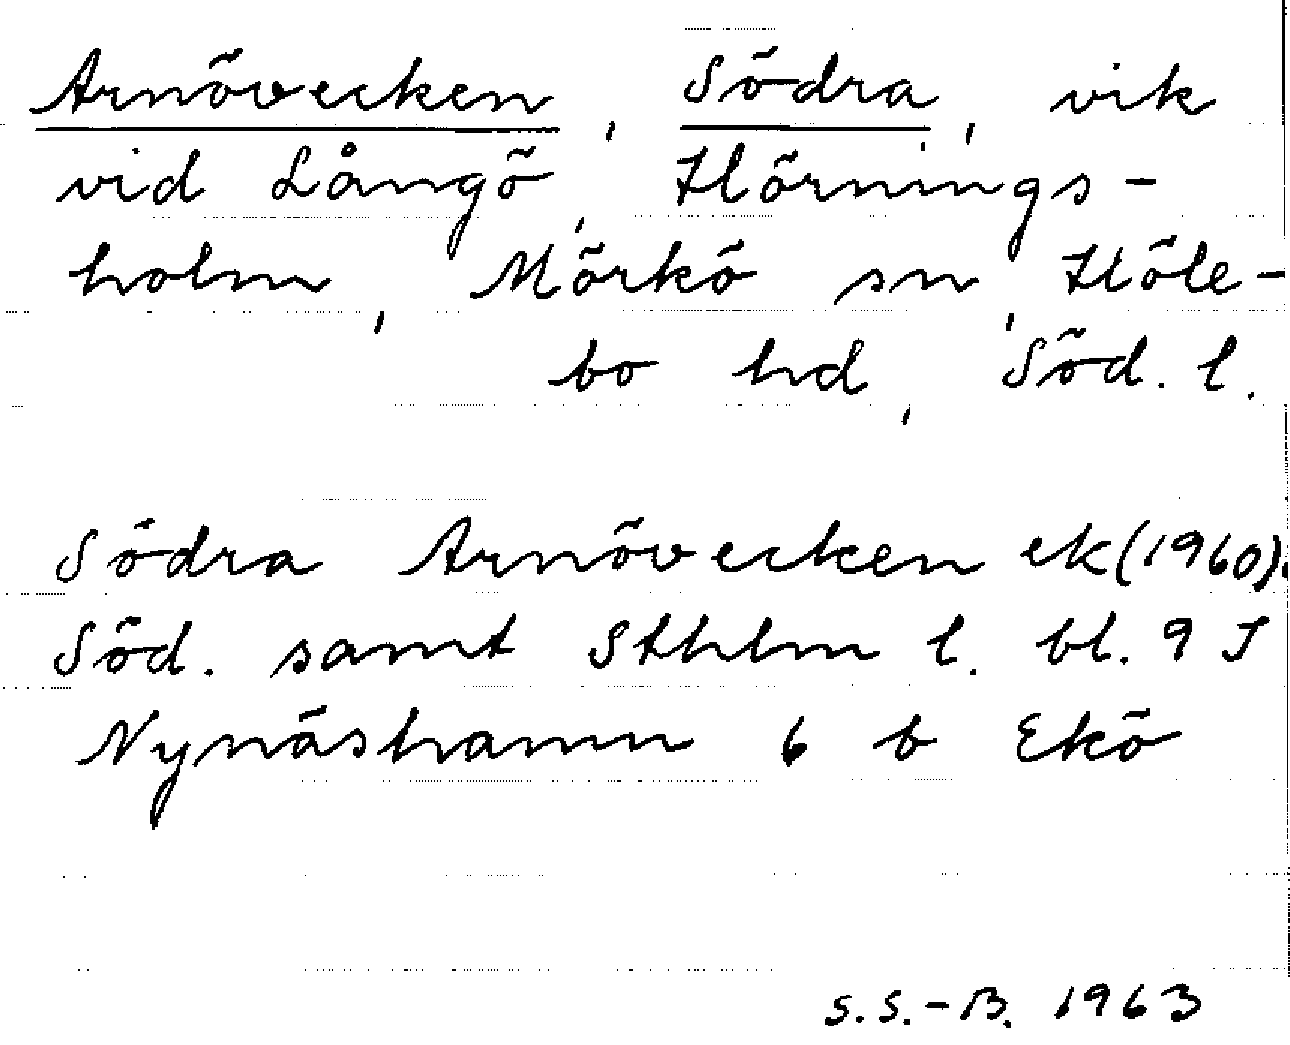 Arnöviken, Södra, vik
vid Långö, Hörnings-
holm, Mörkö sn, Höle-
bo hd, Söd. l.
Södra Arnövecken ek (1960).
Söd. samt Sthlm l. bl. 9 I
Nynäshamn 6 b Ekö
S.S.-B. 1963